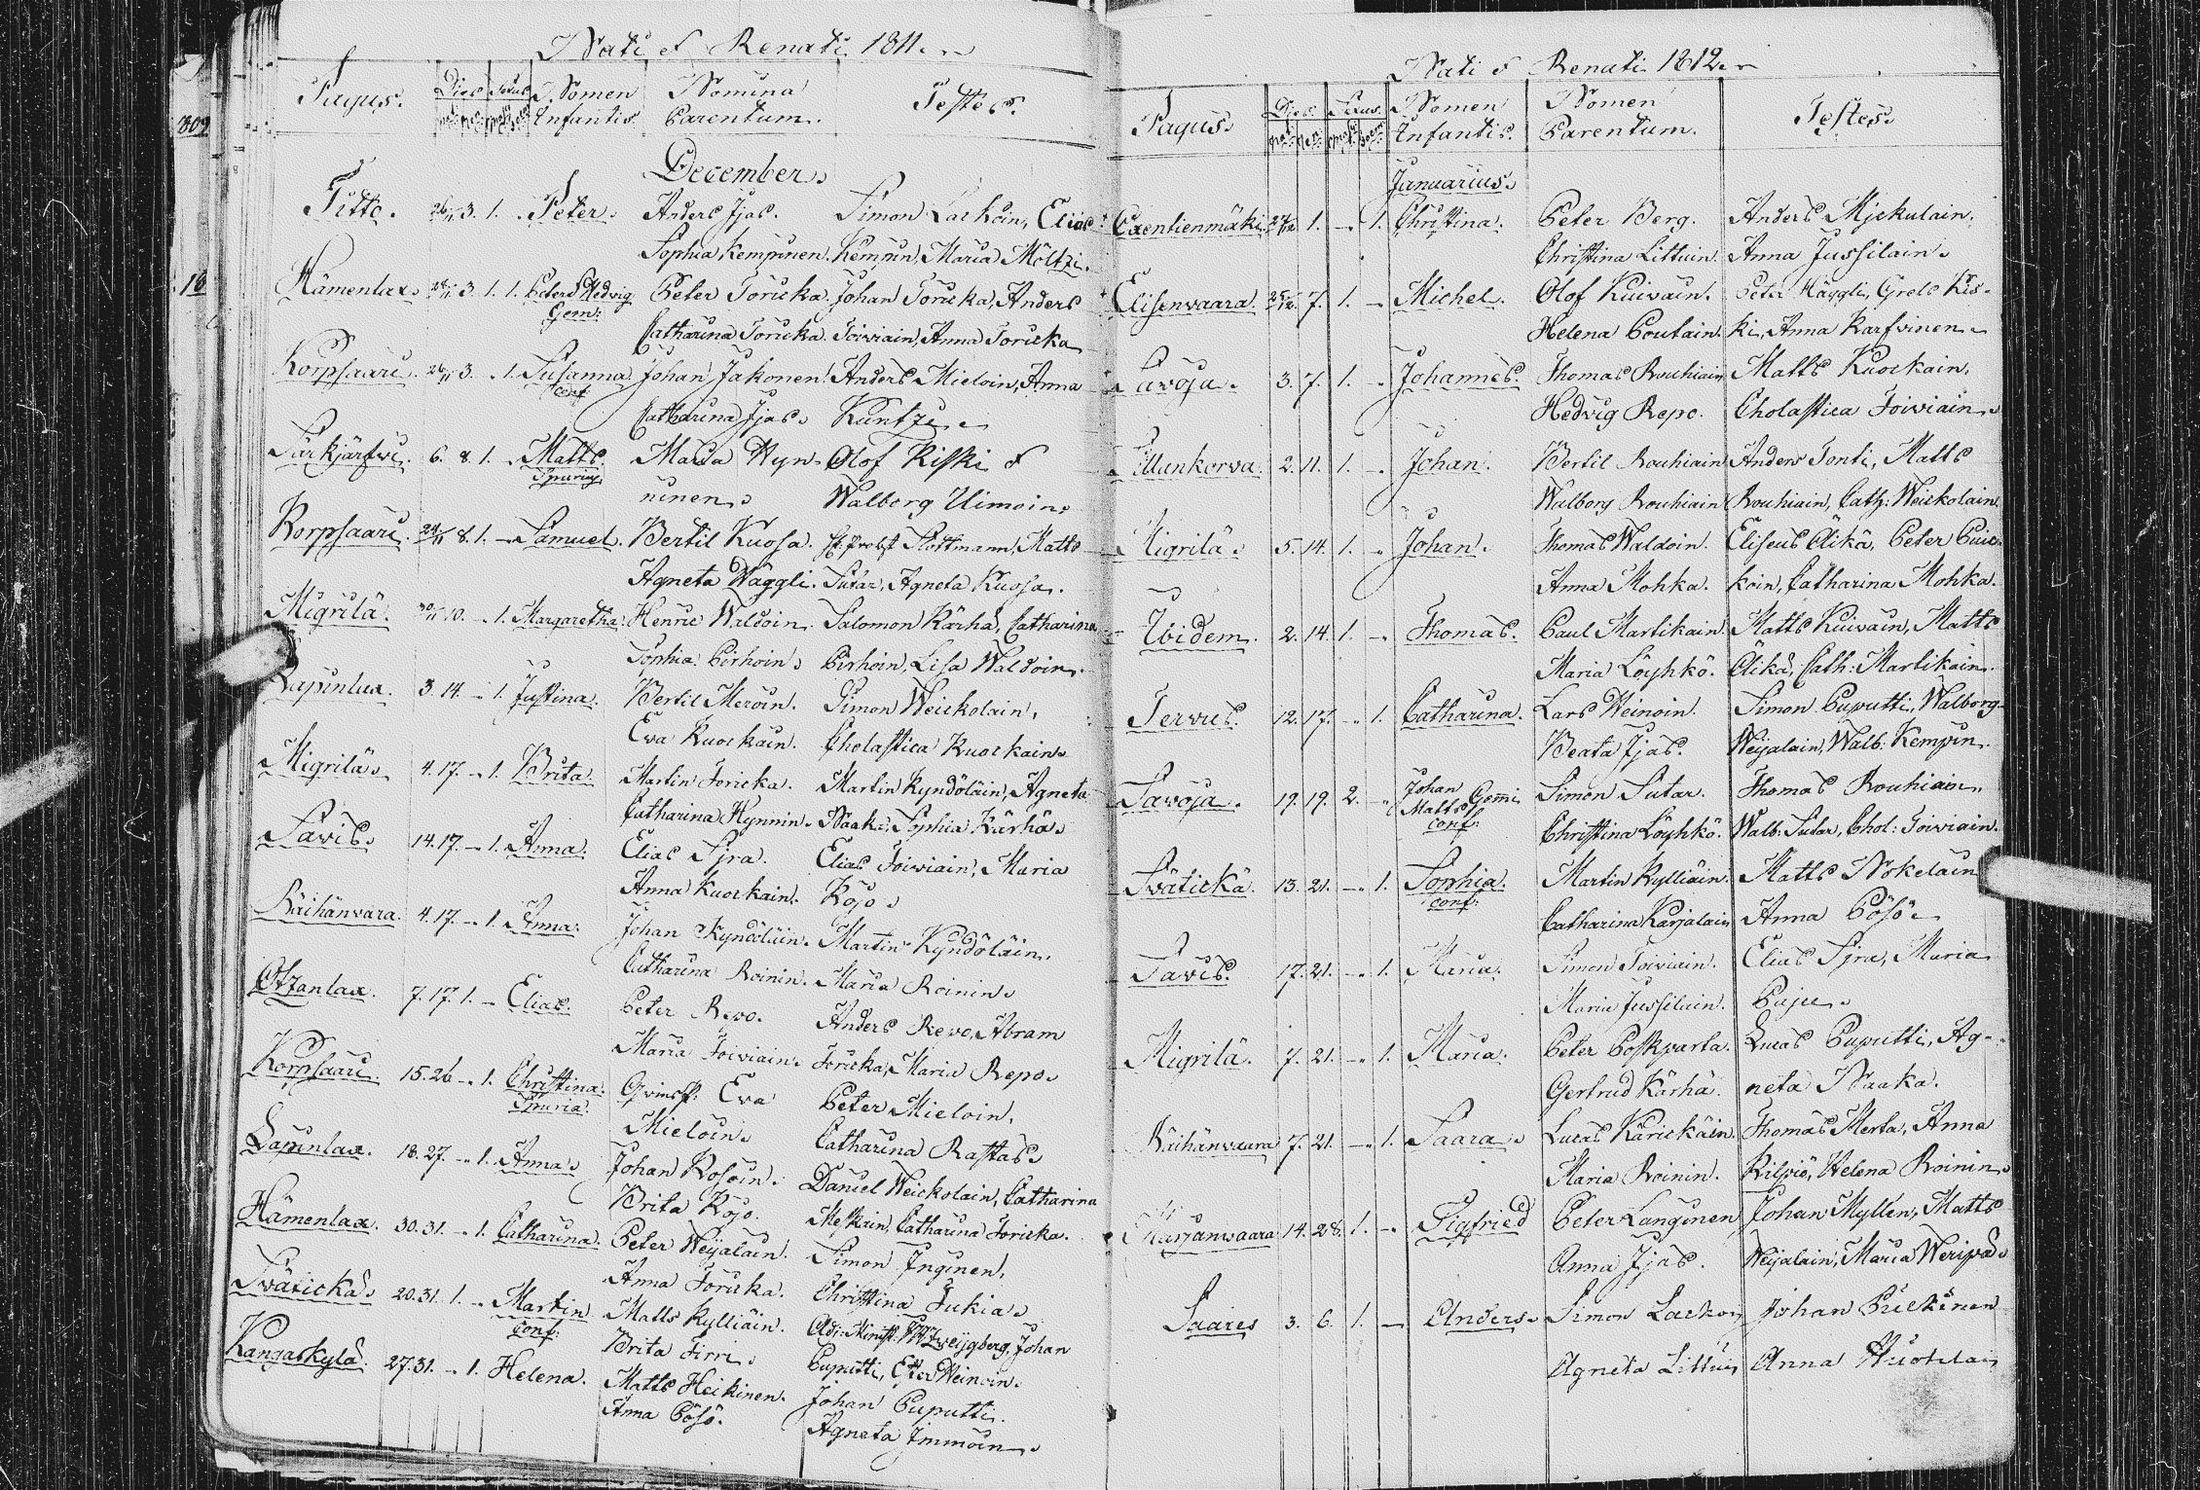 Nati et Renati 1811.
Pagus. Dies Sexus Nomen Nomina Testes.
Infantis Parentum.
December.
Titto. 26/11 3. 1. - Peter. Anders Ijas. Simon Lackoin, Elias
Sophia Kempinen. Kempin, Maria Möltzi.
Hämenlax. 28/11 3. 1. 1. Peter & Hedvig Peter Toricka. Johan Toricka, Anders
Gem: Catharina Toricka. Toiviain, Anna Toricka
Korpsaari. 26/11 3. - 1. Susanna Johan Jakonen. Anders Mieloin, Anna
conf Catharina Ijas. Kuntzi.
Särkjärfvi. 6. 8. 1. - Matts. Maria Hyn- Olof Kiski &
Spurius ninen. Walborg Uimoin.
Korpsaari. 24/11 8. 1. - Samuel. Bertil Kuosa. Hr Probst Slottmann, Matts
Agneta Häggli. Sutar, Agneta Kuosa.
Migrilä. 30/11 10. - 1. Margaretha. Henric Waldoin. Salomon Kärhä, Catharina
Sophia Pirhoin. Pirhoin, Lisa Waldoin.
Lapinlax. 3. 14. - 1. Justina. Bertil Meroin. Simon Weickolain,
Eva Kuockain. Cholastica Kuockain.
Migrilä. 4. 17. - 1. Brita. Martin Toricka. Martin Kyndöläin, Agneta
Catharina Hynnin. Naaka, Sophia Kärhä.
Savis. 14. 17. - 1. Anna. Elias Sjra. Elias Toiviain, Maria
Anna Kuockain. Kojo.
Räihänvara. 4. 17. - 1. Anna. Johan Kyndöläin. Martin Kyndöläin,
Catharina Roinin. Maria Roinin.
Otzanlax. 7. 17. 1. - Elias. Peter Repo. Anders Repo, Abram
Maria Toiviain. Toricka, Maria Repo.
Korpsaari. 15. 26 - 1. Christina. Qvinsp. Eva Peter Mieloin,
Spuria. Mieloin. Catharina Rastas.
Lapinlax. 18. 27. - 1. Anna. Johan Kosoin. Daniel Weickolain, Catharina
Brita Kojo. Meskain, Catharina Toricka.
Hämenlax. 30. 31. - 1. Catharina. Peter Weijalain. Simon Inginen,
Anna Toricka. Christina Jukia.
Svätickä. 20. 31. 1. - Martin Matts Kylliäin. Adj: Minist: Zweijgberg, Johan
conf: Brita Tirri. Puputti, Ester Weinoin.
Kangaskylä. 27. 31. - 1. Helena. Matts Heikinen. Johan Puputti.
Anna Pösö. Agneta Immoin.
Nati & Renati 1812.
Pagus. Dies. Sexus. Nomen Nomen Testes.
Infantis. Parentum.
Januarius.
Pxentienmäki. 27/12 1. - 1. Christina. Peter Berg. Anders Mjckulain.
Christina Littuin. Anna Jussilain.
Elisenvaara. 25/12 7. 1. - Michel. Olof Kuivain. Peter Häggli, Grels Kis-
Helena Poutain. ki, Anna Karfvinen.
Savoja. 3. 7. 1. - Johannes. Thomas Rouhiain Matts Kuockain,
Hedvig Repo. Cholastica Toiviain.
Tillunkorva. 2. 11. 1. - Johan. Bertil Rouhiain Anders Tonti, Matts
Walborg Rouhiain Rouhiain, Cath: Weickolain.
Migrilä. 5. 14. 1. - Johan. Thomas Waldoin. Eliseus Älikä, Peter Puic-
Anna Mohka. koin, Catharina Mohka.
Ibidem. 2. 14. 1. - Thomas. Paul Martikain. Matts Kuivain, Matts
Maria Löyhkö. Älikä, Cath: Martikain.
Tervus. 12. 17. - 1. Catharina. Lars Weinoin. Simon Puputti, Walborg
Beata Ijas. Weijalain, Walb: Kempin.
Savoja. 19. 19. 2. - Johan Simon Sutar. Thomas Rouhiain.
Matts Gemi: conf: Christina Löyhkö. Walb: Sutar, Chol: Toiviain.
Svätickä. 13. 21. - 1. Sophia. Martin Kylliäin. Matts Nokelain
conf: Catharina Karjalain Anna Pösö.
Savis. 17. 21. - 1. Maria. Simon Toiviain. Elias Sjra, Maria
Maria Jussilain. Paju.
Migrilä. 7. 21. - 1. Maria. Peter Poskparta. Lucas Puputti, Ag-
Gertrud Kärhä. neta Naaka.
Räihänvaara 7. 21. - 1. Saara. Lucas Karickäin. Thomas Merta, Anna
Maria Roinin. Kilpiö, Helena Roinin.
Harjanvaara 14. 28. 1. - Sigfried Peter Langinen Johan Myllen, Matts
Anna Ijas. Weijalain, Maria Weripä.
Saares 3. 6. 1. - Anders. Simon Lackon Johan Pulkinen
Agneta Littuin Anna Huotilain